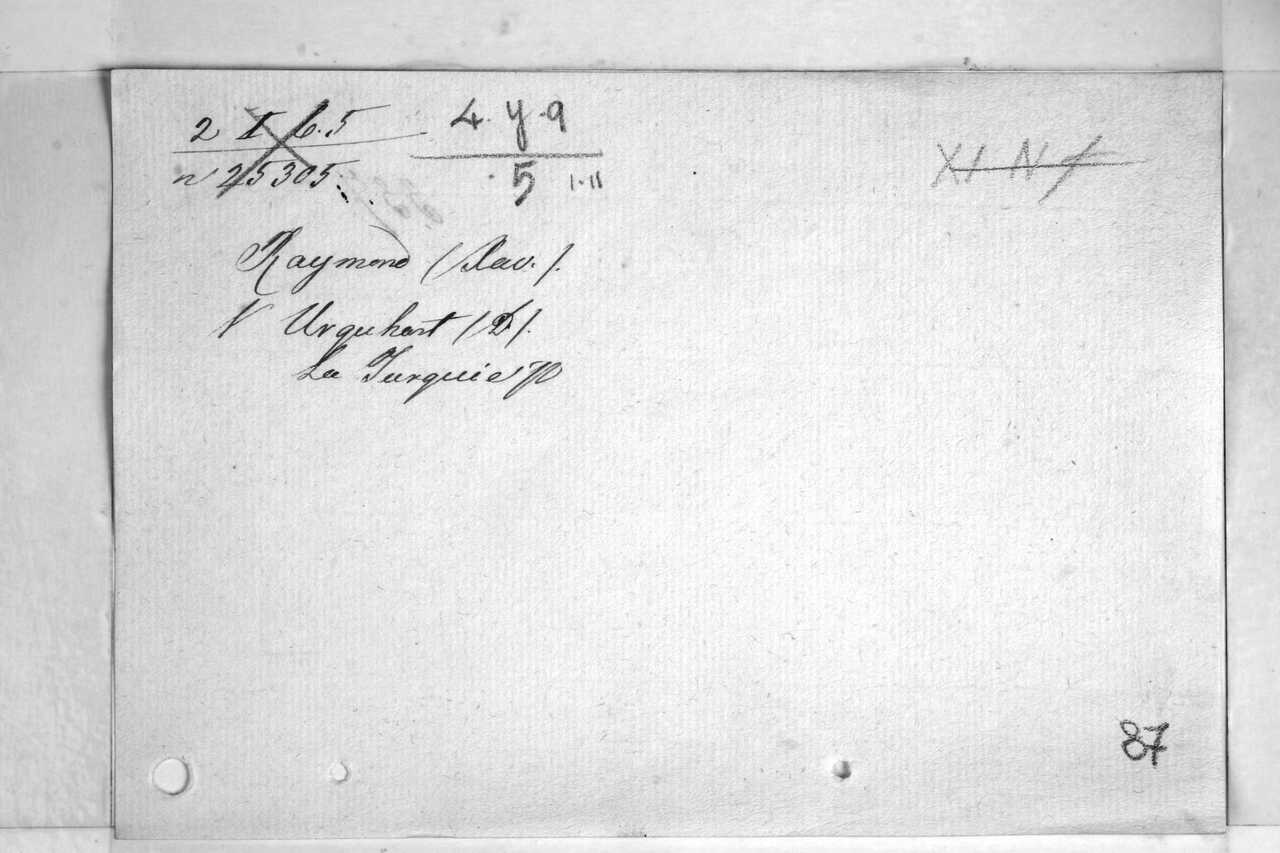 2 I b. 5
n° 25305.
4. y. 9
5 1-11
XI N f
Raymond (Xav.).
V Urquhart (D).
La Turquie
87